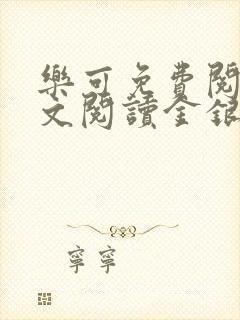 樂可免費閱
文閱讀金銀
寧寧